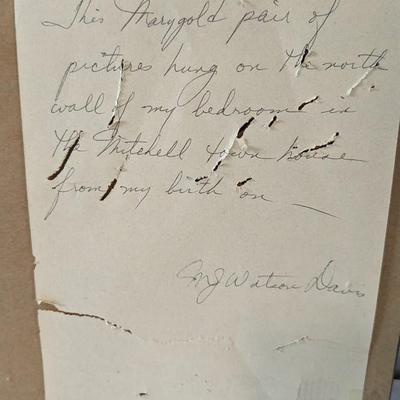 This Marygold pair of
picture hung on the north
wall of my bedroom in
the Mitchell town house
from my birth on —
MJ Watson Davis